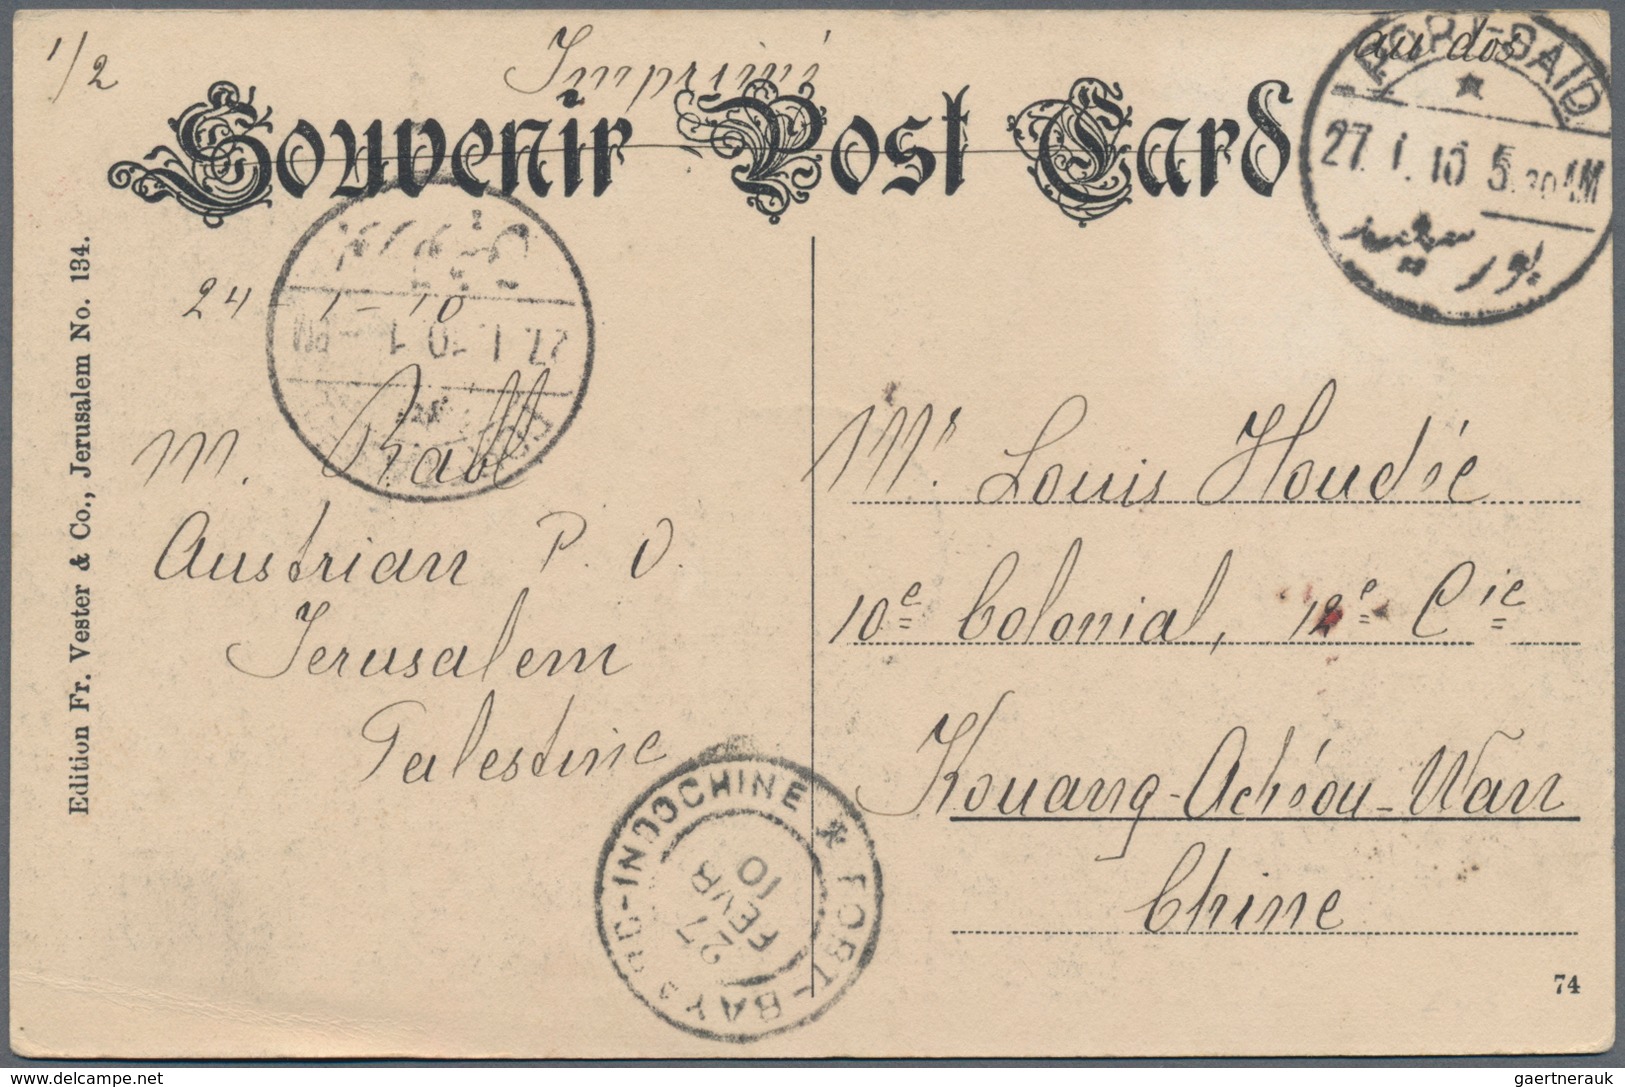 1/2
Imprimé
au dos
Souvenir Post Card
PORT-SAID
27. I. 10 5.30 AM
بور سعيد
24-1-10
27. I. 10 1 - PM
M. Rabl
Austrian P. O.
Jerusalem
Palestine
Edition Fr. Vester & Co., Jerusalem No. 134.
Mr. Louis Houdée
10e Colonial, 12e Cie
Kouang-Achéou-Wan
Chine
INDOCHINE * FORT-BAYARD
27
FEVR
10
74
gaertnerauk
www.delcampe.net